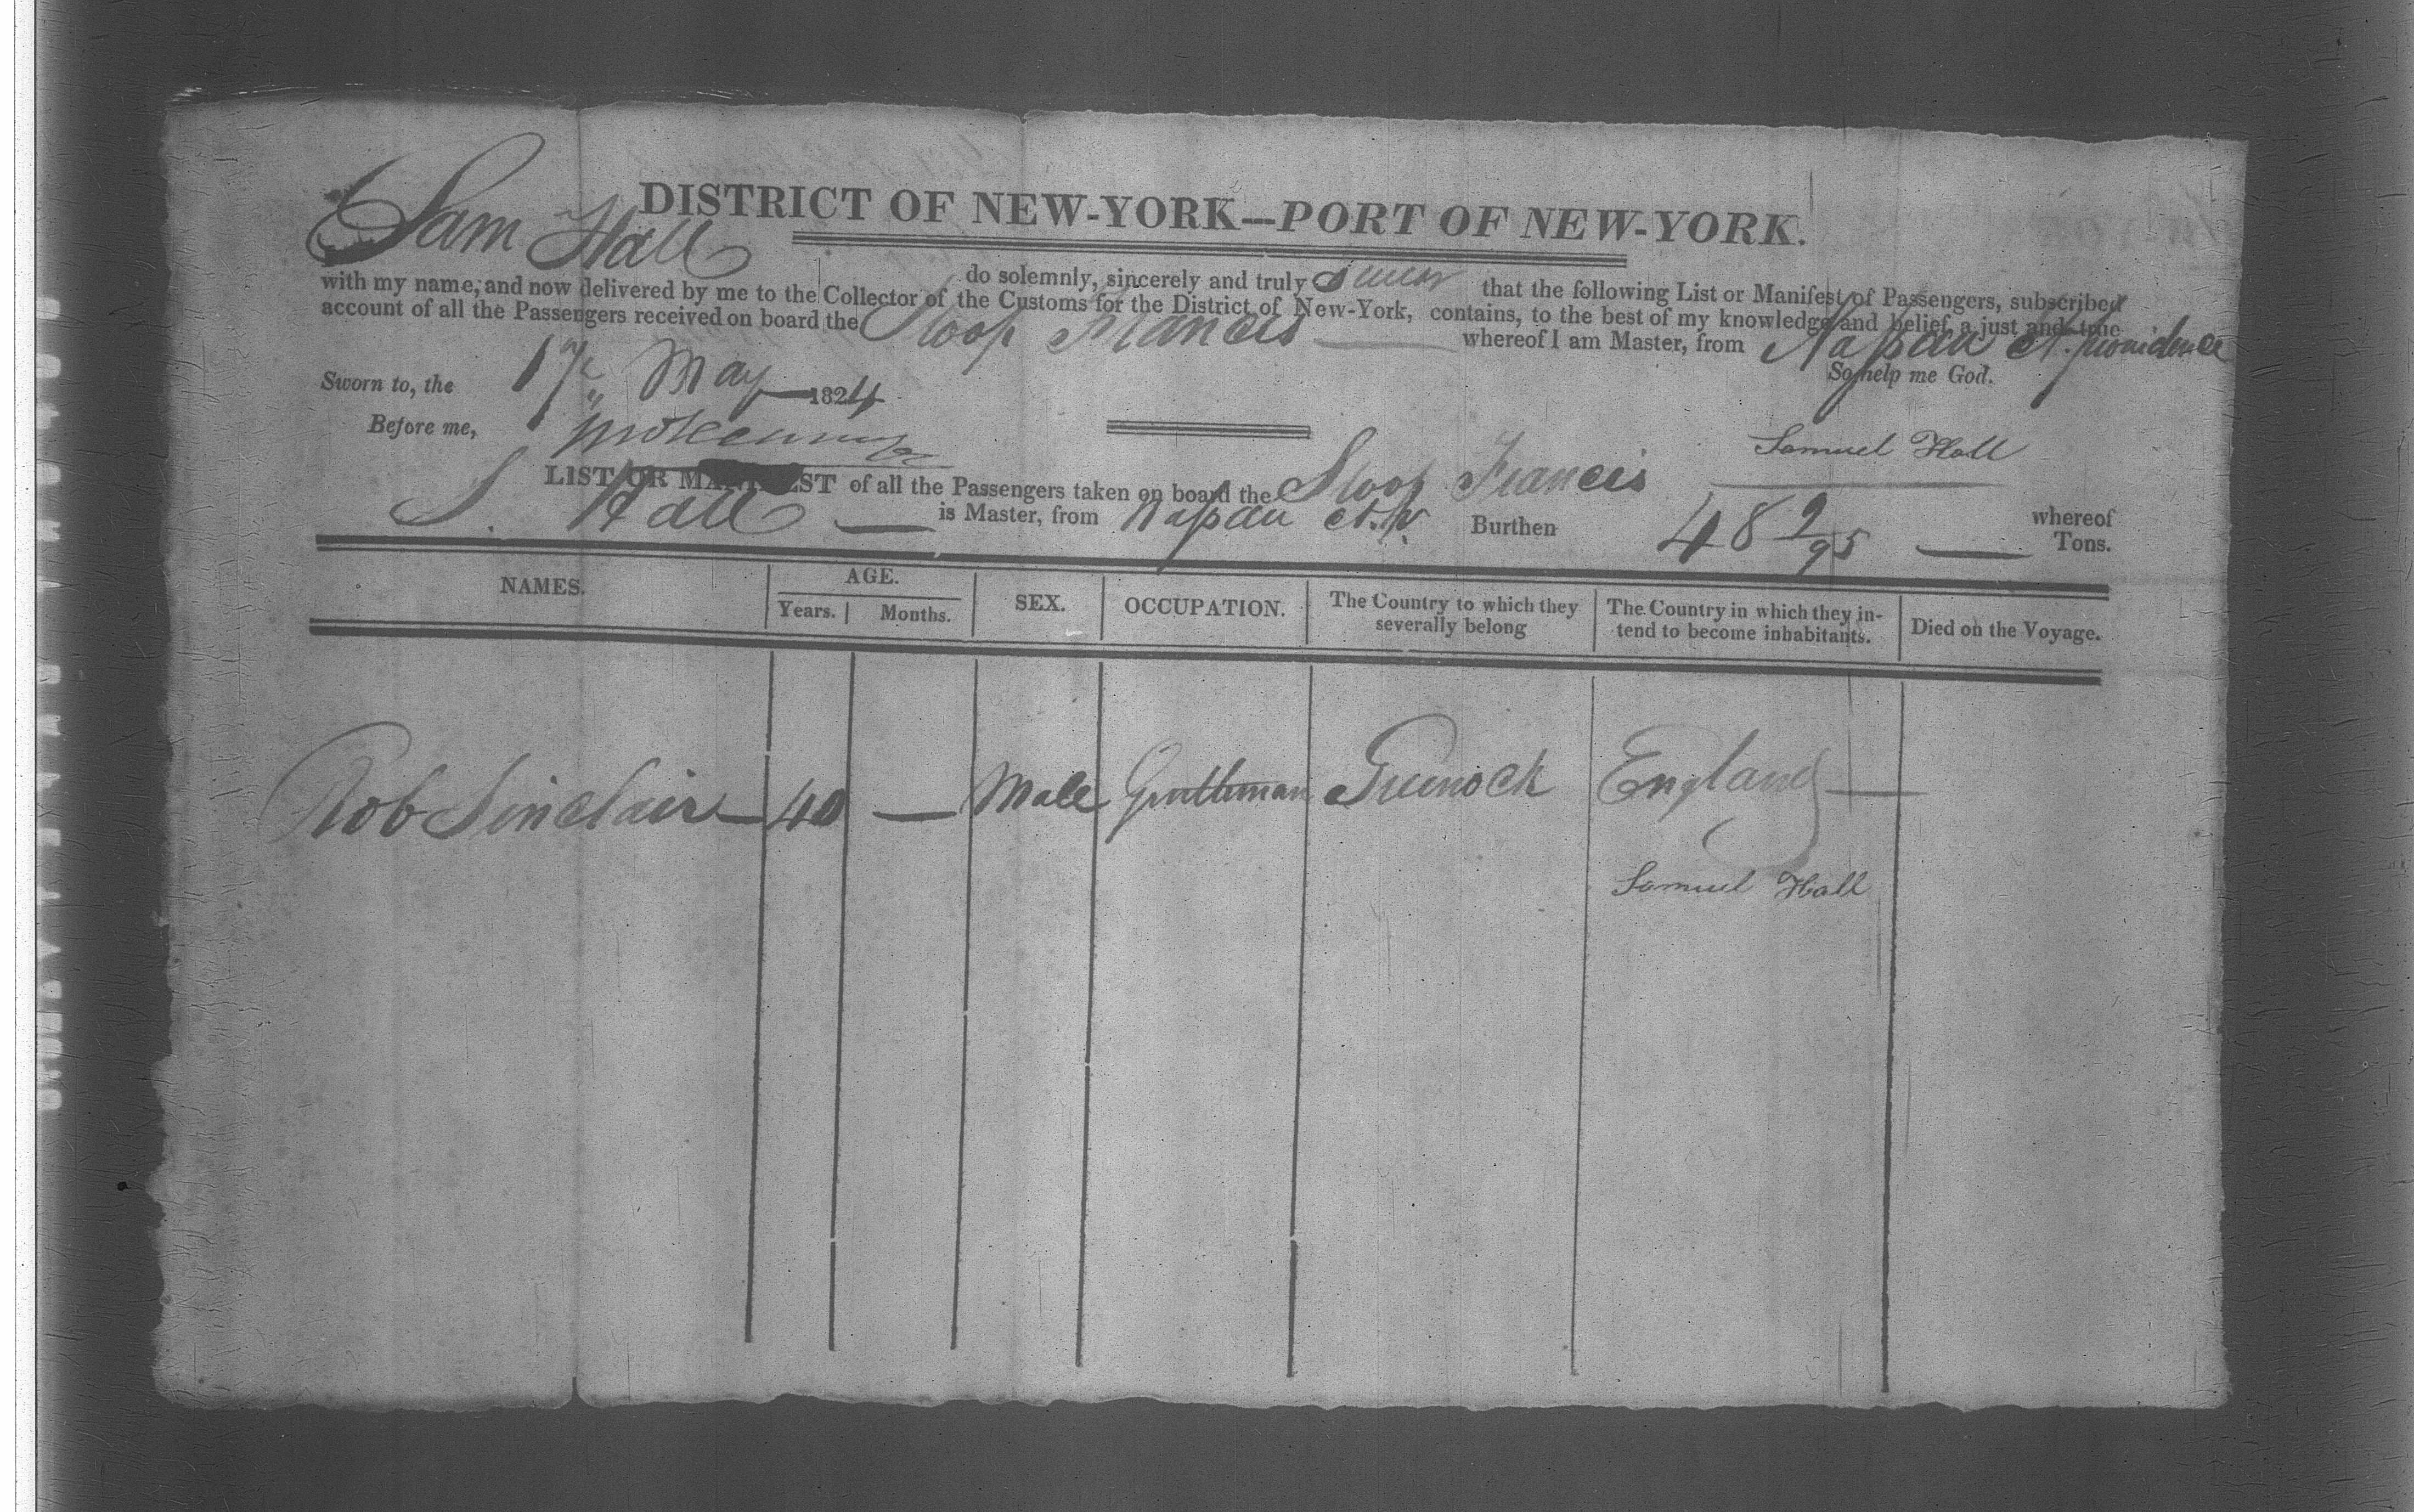 DISTRICT OF NEW-YORK---PORT OF NEW-YORK.
Sam Hall do solemnly, sincerely and truly swear that the following List or Manifest of Passengers, subscribed
with my name, and now delivered by me to the Collector of the Customs for the District of New-York, contains, to the best of my knowledge and belief, a just and true
account of all the Passengers received on board the Sloop Francis whereof I am Master, from Nassau N. Providence
So help me God.
Sworn to, the 17th May 1824
Before me,
Samuel Hall
LIST OR MANIFEST of all the Passengers taken on board the Sloop Francis whereof
S. Hall is Master, from Nassau N.P. Burthen 48 9/95 Tons.
NAMES. AGE. SEX. OCCUPATION. The Country to which they severally belong The Country in which they in-tend to become inhabitants. Died on the Voyage.
Years. Months.
Rob Sinclair 40 — Male Gentleman Greenock England —
Samuel Hall